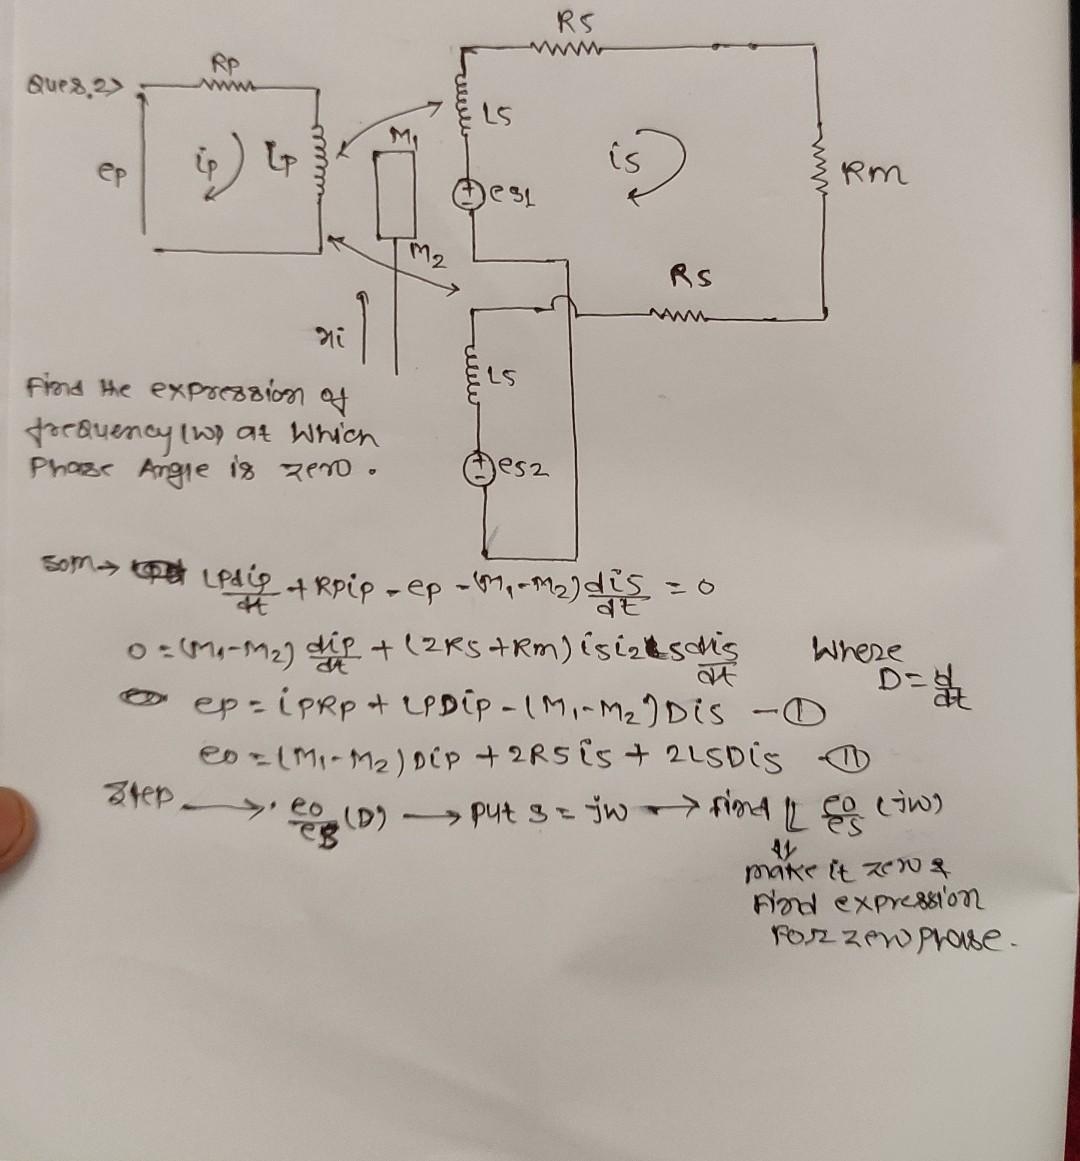 Rs
Rp
Ques.2>
M1
Ls
ep
ip
Lp
is
Rm
es1
M2
Rs
xi
Ls
Find the expression of
frequency (w) at which
Phase Angle is zero.
es2
Som→ Lpdip/dt + Rpip - ep - (M1-M2) dis/dt = 0
0 = (M1-M2) dip/dt + (2Rs + Rm) is dis/dt
Where
D = d/dt
ep = ipRp + LpDip - (M1-M2) Dis - ①
eo = (M1-M2) Dip + 2Rsis + 2LsDis - ⑪
Step → eo/es (D) → put s = jw → find ∠ eo/es (jw)
⇓
make it zero &
Find expression
For zero phase.